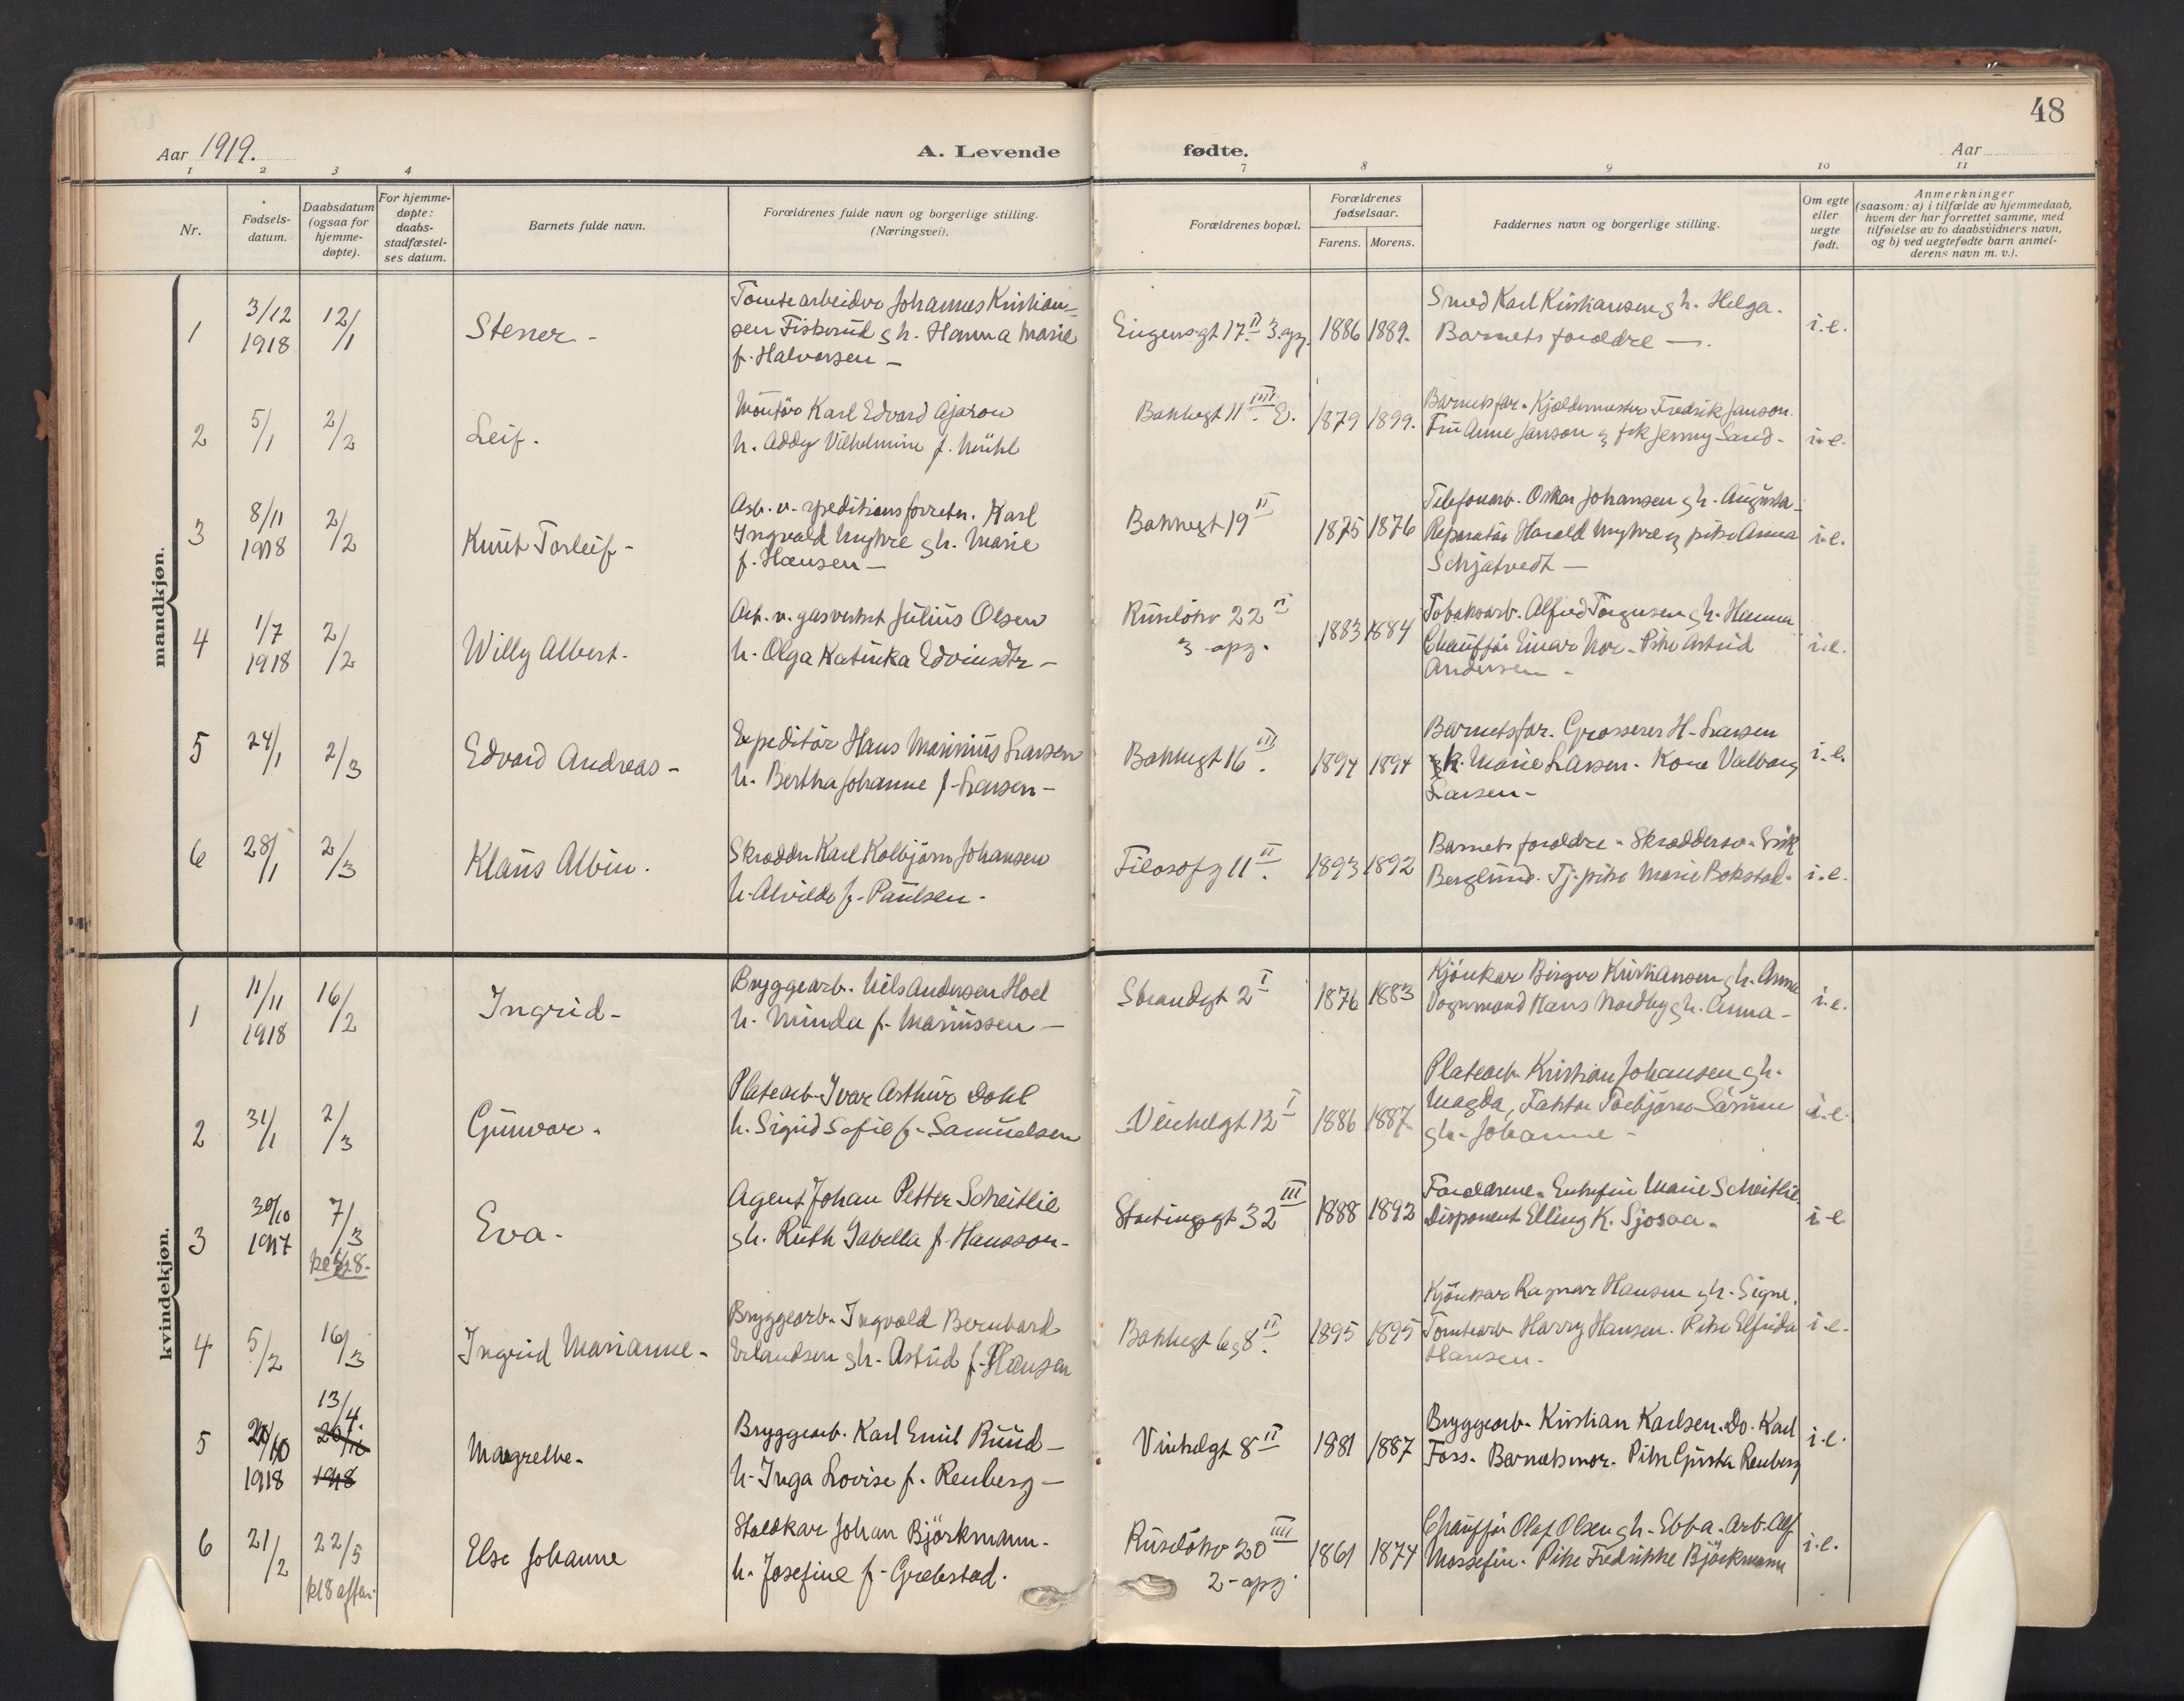 48
Aar 1919.
A. Levende fødte.
Aar
1 2 3 4 7 8 9 10 11
Nr.
Fødsels-
datum.
Daabsdatum
(ogsaa for
hjemme-
døpte).
For hjemme-
døpte:
daabs-
stadfæstel-
ses datum.
Barnets fulde navn.
Forældrenes fulde navn og borgerlige stilling.
(Næringsvei).
Forældrenes bopæl.
Forældrenes
fødselsaar.
Farens. Morens.
Faddernes navn og borgerlige stilling.
Om egte
eller
uegte
født.
Anmerkninger
(saasom: a) i tilfælde av hjemmedaab,
hvem der har forrettet samme, med
tilføielse av to daabsvidners navn,
og b) ved uegtefødte barn anmel-
derens navn m. v.).
mandkjøn.
1
3/12
1918
12/1
Stener -
Tomtearbeider Johannes Kristian-
sen Fiskerud gh. Hanna Marie
f. Halvorsen -
Eugensgt 17 II 3. opg.
1886 1889.
Smed Karl Kristiansen gh. Helga.
Barnets foreldre -.
i.e.
2
5/1
2/2
Leif.
Montör Karl Edvard Ajaron
h. Addy Vilhelmine f. Mühl
Bakkegt 11 IIII. E.
1879 1899.
Barnets far. Kjeldermester Fredrik Janson.
Fru Anne Janson g frk Jenny Sand-
i.e.
3
8/11
1918
2/2
Knut Torleif -
Arb. v. speditionsforretn. Karl
Ingvald Myhre gh. Marie
f. Hansen -
Bakkegt 19 II
1875 1876
Telefonarb. Oskar Johansen gh. Augusta -
Reparatör Harald Myhre g pike Anna
Schjatvedt -
i.e.
4
1/7
1918
2/2
Willy Albert.
Arb. v. gasverket Julius Olsen
h. Olga Katinka Edvinsdtr -
Ruselökv 22 II
3 opg.
1883 1884
Tobaksarb. Alfred Torgersen gh. Hanna
Chauffør Einar Nor. Pike Astrid
Andersen -
i.e.
5
24/1
2/3
Edvard Andreas -
Expeditör Hans Marinius Larsen
h. Bertha Johanne f. Larsen -
Bakkegt 16 III.
1894 1894
Barnets far. Grosserer H. Larsen
g h. Marie Larsen. Kone Valborg
Larsen -
i.e.
6
28/1
2/3
Klaus Albin.
Skrædder Karl Kolbjörn Johansen
h. Alvilde f. Paulsen.
Filosofg 11 II.
1893 1892
Barnets foreldre. Skræddersv. Erik
Berglund. Tj.pike Marie Bokstad.
i.e.
kvindekjøn.
1
11/11
1918
16/2
Ingrid -
Bryggearb. Nils Andersen Hoel
h. Minda f. Mariussen -
Strandgt 2 I
1876 1883
Kjörekar Birger Kristiansen gh. Anna
Vognmand Hans Nordby gh. Anna -
i.e.
2
31/1
2/3
Gunvor.
Platearb. Ivar Arthur Dahl
h. Sigrid Sofie f. Samuelsen
Vinkelgt 12 I
1886 1887
Platearb. Kristian Johansen gh.
Magda, Faktor Torbjörn
gh. Johanne -
i.e.
3
30/10
1917
7/3
Eva -
Agent Johan Petter Scheitlie
gh. Ruth Isabella f. Hansson -
Stortingsgt 32 III
1888 1892
Foreldrene. Enkefru Marie Scheitlie
Disponent Elling K. Sjosaa.
i.e.
4
5/2
16/3
Ingrid Marianne -
Bryggearb. Ingvald Bernhard
Erlandsen gh. Astrid f. Hansen
Bakkegt 6 g 8 II.
1895 1895
Kjörekar Ragnar Hansen gh. Signe.
Tomtearb. Harry Hansen. Pike Elfrida
Hansen -
i.e.
5
20/10
1918
13/4.
1918
Margrethe -
Bryggearb. Karl Emil Ruud -
h. Inga Lovise f. Renberg -
Vinkelgt 8 II
1881 1887
Bryggearb. Kristian Karlsen. Do. Karl
Foss. Barnets mor. Pike Gusta Renberg
i.e.
6
21/2
22/5
kl 8 aften
Else Johanne
Staldkar Johan Björkmann.
h. Josefine f. Grebstad.
Ruselökv 20 IIII
2 opg.
1861 1874
Chauffør Olaf Olsen gh. Ebba. Arb. Alf
Mossefin. Pike Fredrikke Björkmann
i.e.